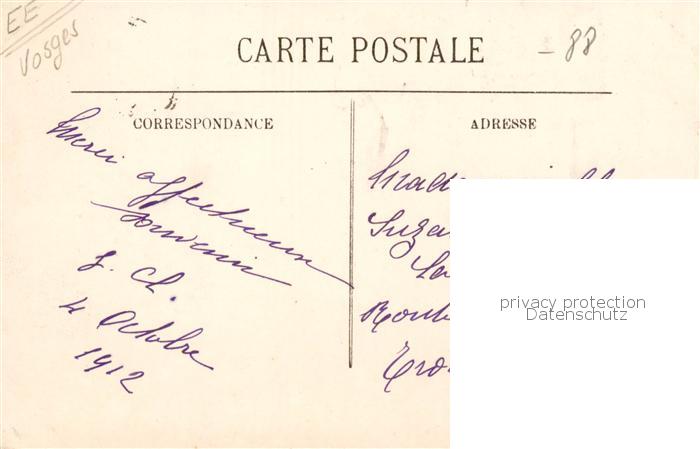 EE
Vosges
CARTE POSTALE
- 88
CORRESPONDANCE
ADRESSE
Merci affectueux
souvenir
J. Ch.
4 Octobre
1912
Suza
privacy protection
Datenschutz